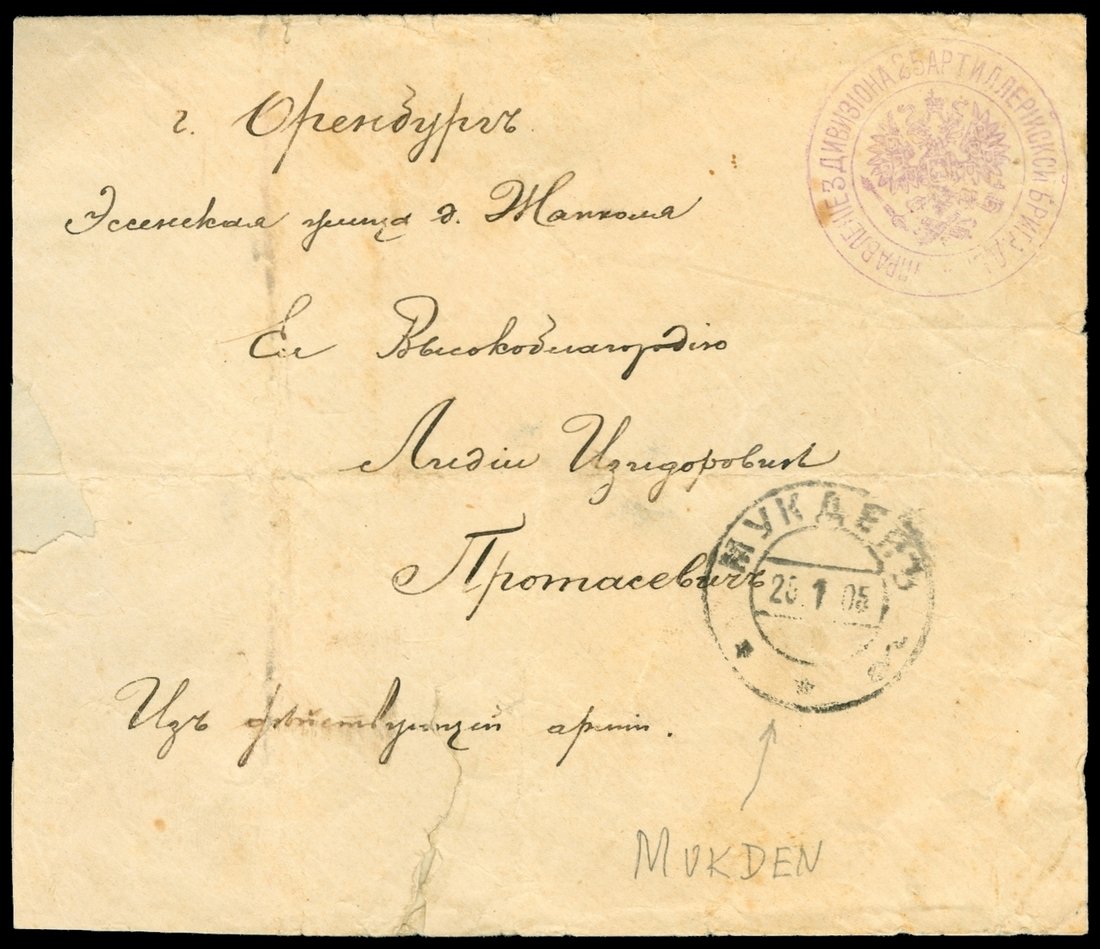 г. Оренбургъ
УПРАВЛЕНІЕ 3 ДИВИЗІОНА 25 АРТИЛЛЕРІЙСКОЙ БРИГАДЫ
Эссенская улица д. Жапкома
Ея Высокоблагородію
Лидіи Изидоровнѣ
Протасевичъ
МУКДЕНЪ
25 1 05
Изъ дѣйствующей арміи.
MUKDEN